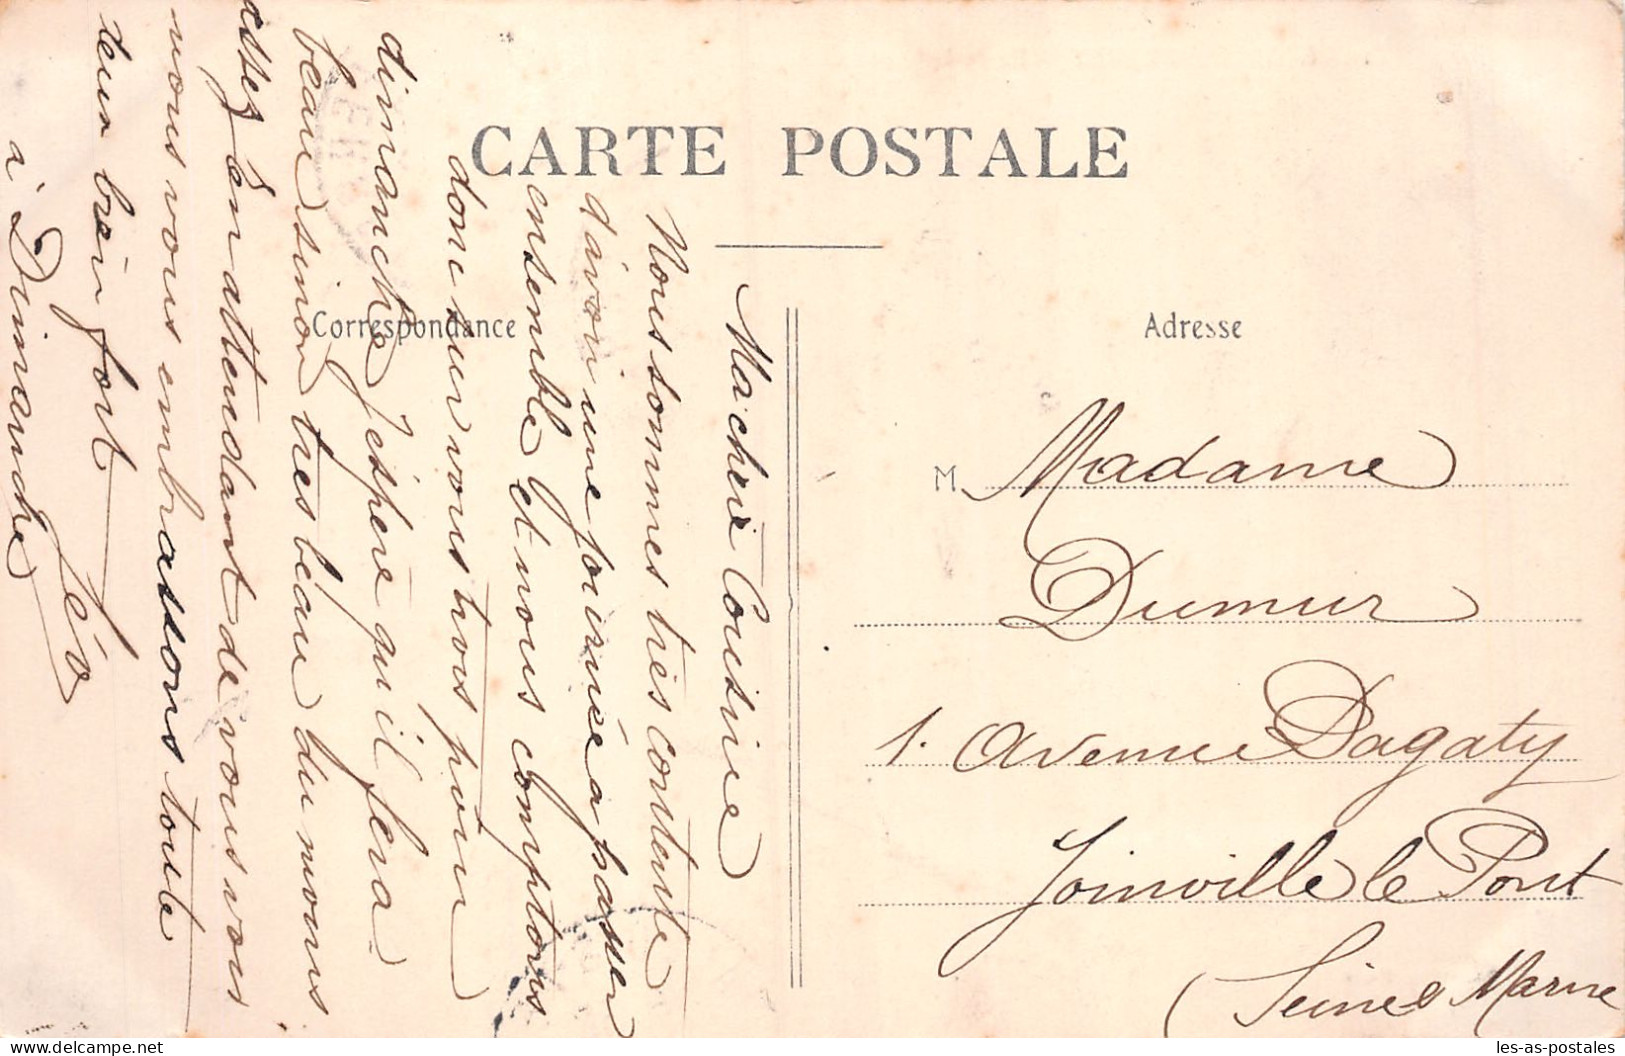 CARTE POSTALE
Correspondance
Adresse
Ma chère Cousine
Nous sommes très contente
d'avoir une journée a passer
ensemble et nous comptons
donc sur vous trois pour
dimanche j'éspère qu'il fera
beau sinon très beau du moins
assez en attendant de vous voir
nous vous embrassons toute
deux bien fort
Léo
à Dimanche
M Madame
Dumur
1. Avenue Dagaty
Joinville le Pont
(Seine & Marne
les-as-postales